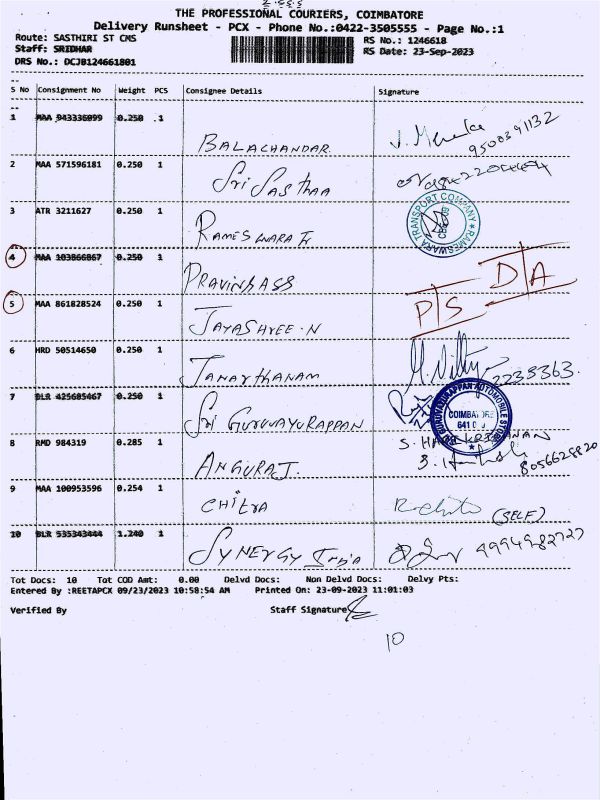 THE PROFESSIONAL COURIERS, COIMBATORE
Delivery Runsheet - PCX - Phone No.:0422-3505555 - Page No.:1
Route: SASTHIRI ST CMS
RS No.: 1246618
Staff: SRIDHAR
RS Date: 23-Sep-2023
DRS No.: DCJB124661801
S No Consignment No Weight PCS Consignee Details Signature
1 MAA 943336099 0.250 1 BALACHANDAR 9500391132
2 MAA 571596181 0.250 1 Sri Sasthaa
3 ATR 3211627 0.250 1 RAMESWARA Tr
RAMESWARA TRANSPORT COMPANY
4 MAA 103866867 0.250 1 PRAVINBASS D/A
5 MAA 861828524 0.250 1 JAYASHREE.N P/S
6 HRD 50514650 0.250 1 JANARTHANAM 2235363
7 BLR 425605467 0.250 1 Sri GURUVAYURAPPAN
GURUVAYURAPPAN AUTOMOBILE STORES
COIMBATORE
8 RMD 984319 0.285 1 ANGURAJ. S. HARIKRISHNAN
8056628820
9 MAA 100953596 0.254 1 CHITRA R. Chitra (SELF)
10 BLR 535343444 1.240 1 SYNERGY India 9994982727
Tot Docs: 10 Tot COD Amt: 0.00 Delvd Docs: Non Delvd Docs: Delvy Pts:
Entered By :REETAPCX 09/23/2023 10:58:54 AM Printed On: 23-09-2023 11:01:03
Verified By Staff Signature
10